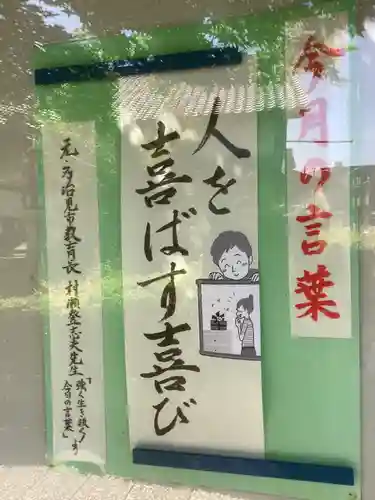 今月の言葉
人を
喜ばす喜び
元・多治見市教育長 村瀬登志夫先生「強く生き抜く
今日の言葉」より